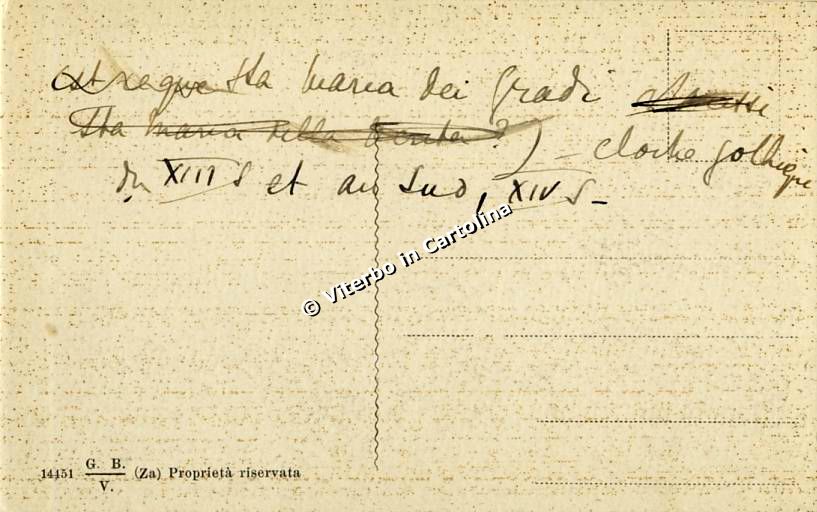 Sta Maria dei Gradi
Sta Maria della Verità ?) - cloître gothique
du XIII s et au sud, XIV s -
© Viterbo in Cartolina
14451 G. B. V. (Za) Proprietà riservata